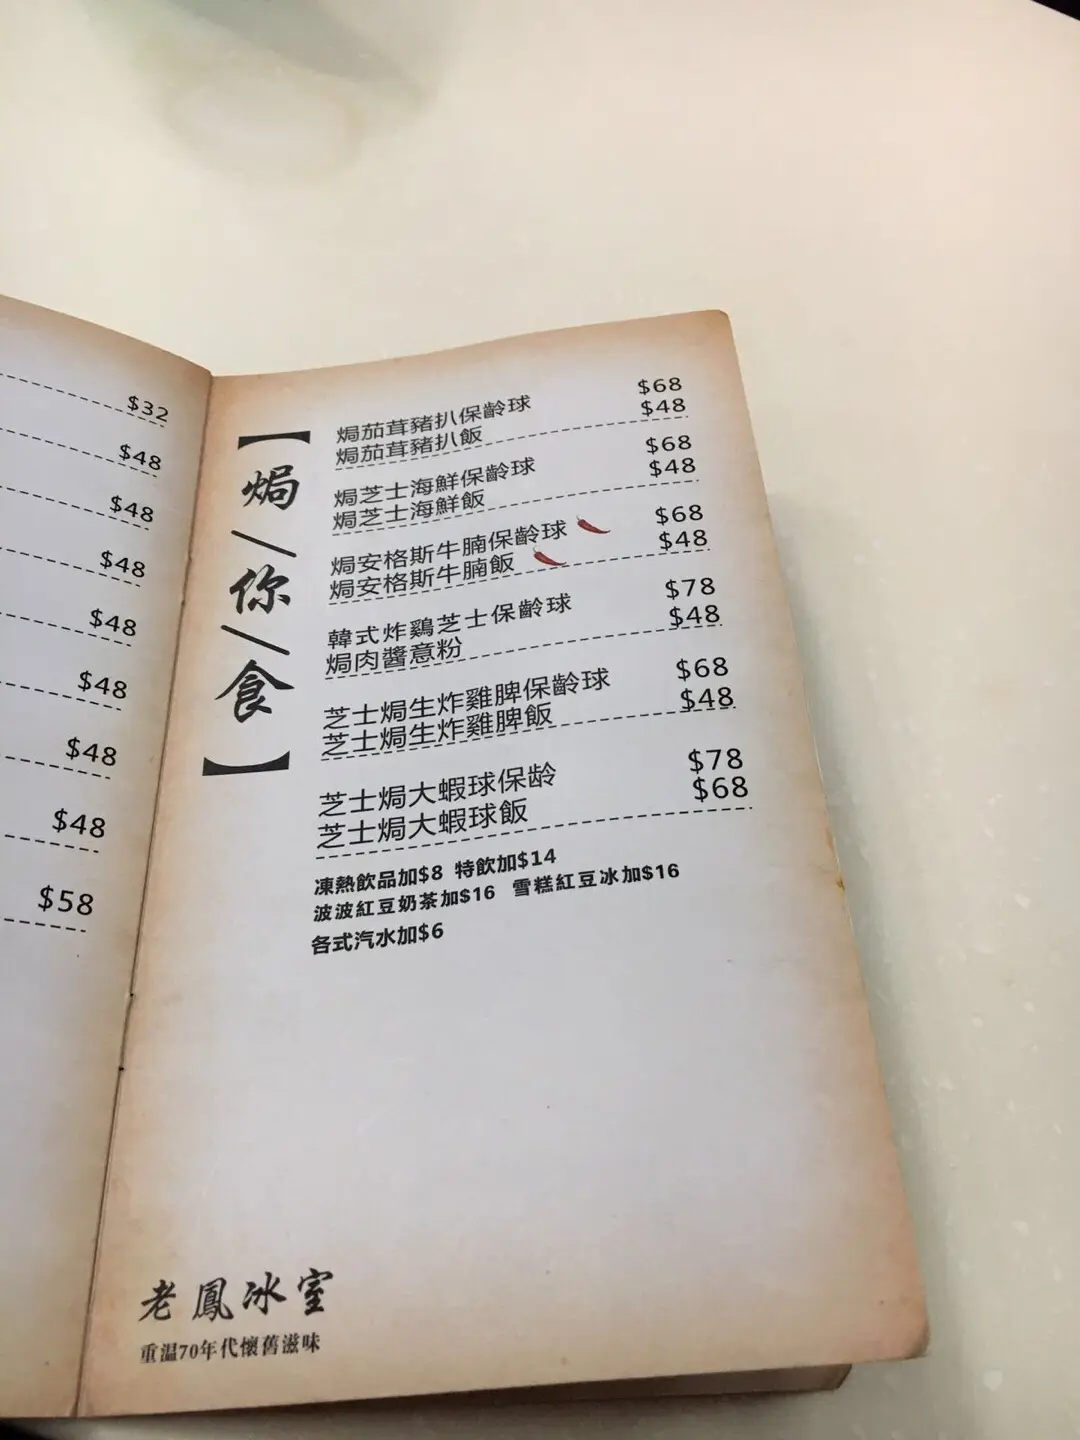 $32
$48
$48
$48
$48
$48
$48
$48
$58
【焗／你／食】
焗茄茸豬扒保齡球 $68
焗茄茸豬扒飯 $48
焗芝士海鮮保齡球 $68
焗芝士海鮮飯 $48
焗安格斯牛腩保齡球 $68
焗安格斯牛腩飯 $48
韓式炸鷄芝士保齡球 $78
焗肉醬意粉 $48
芝士焗生炸雞脾保齡球 $68
芝士焗生炸雞脾飯 $48
芝士焗大蝦球保龄 $78
芝士焗大蝦球飯 $68
凍熱飲品加$8 特飲加$14
波波紅豆奶茶加$16 雪糕紅豆冰加$16
各式汽水加$6
老鳳冰室
重溫70年代懷舊滋味